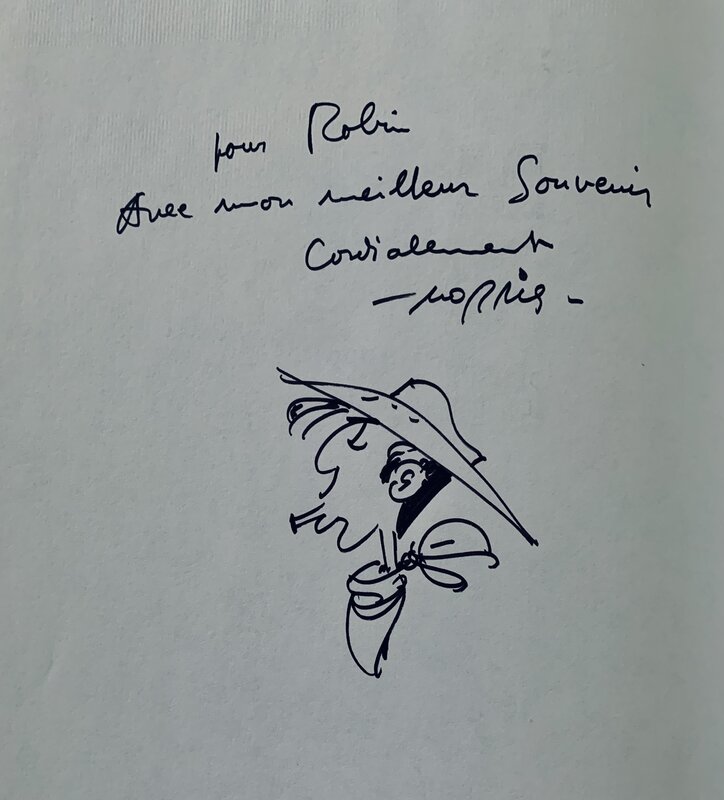 pour Robin
Avec mon meilleur Souvenir
Cordialement
- MORRIS -